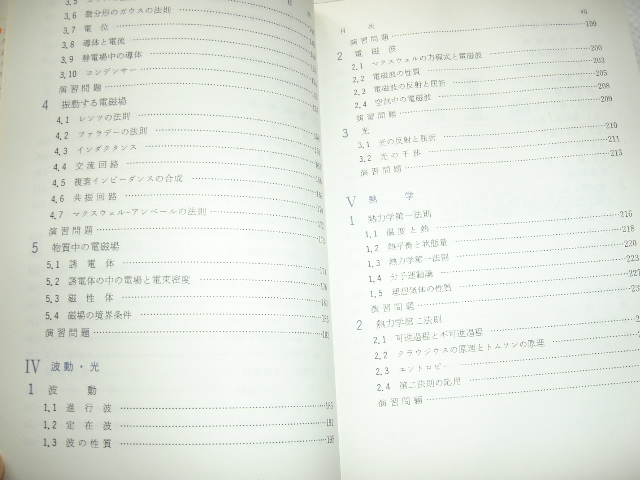 3.6 微分形のガウスの法則
3.7 電位
3.8 導体と電流
3.9 静電場中の導体
3.10 コンデンサー
演習問題
4 振動する電磁場
4.1 レンツの法則
4.2 ファラデーの法則
4.3 インダクタンス
4.4 交流回路
4.5 複素インピーダンスの合成
4.6 共振回路
4.7 マクスウェル-アンペールの法則
演習問題
5 物質中の電磁場
5.1 誘電体
5.2 誘電体の中の電場と電束密度
5.3 磁性体
5.4 磁場の境界条件
演習問題
IV 波動・光
1 波動
1.1 進行波
1.2 定在波
1.3 波の性質
目次 vii
演習問題 199
2 電磁波
2.1 マクスウェルの方程式と電磁波 200
2.2 電磁波の性質 203
2.3 電磁波の反射と屈折 205
2.4 空洞中の電磁波 208
演習問題 209
3 光
3.1 光の反射と屈折 210
3.2 光の干渉 211
演習問題 213
V 熱学
1 熱力学第一法則
1.1 温度と熱 216
1.2 熱平衡と状態量 218
1.3 熱力学第一法則 220
1.4 分子運動論 223
1.5 理想気体の性質 227
演習問題
2 熱力学第二法則
2.1 可逆過程と不可逆過程
2.2 クラウジウスの原理とトムソンの原理
2.3 エントロピー
2.4 第二法則の応用
演習問題